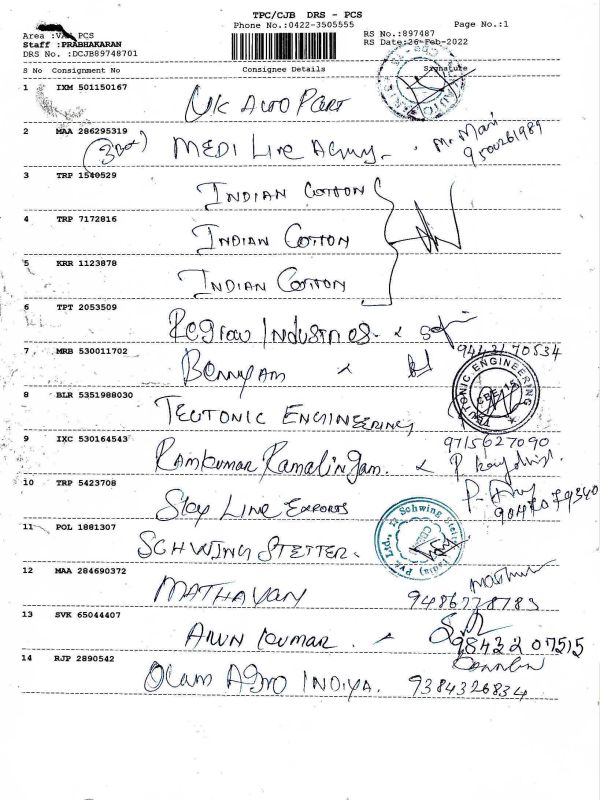 TPC/CJB DRS - PCS
Phone No.:0422-3505555
Page No.:1
Area : PCS
Staff : PRABHAKARAN
DRS No. :DCJB89748701
RS No.:897487
RS Date:26-Feb-2022
S No Consignment No Consignee Details Signature
1 IXM 501150167 UK AUTO PART
2 MAA 286295319 MEDI Line Agency. Mr. Mani
(3 Box) 9500261989
3 TRP 1540529 INDIAN COTTON
4 TRP 7172816 INDIAN COTTON
5 KRR 1123878 INDIAN COTTON
6 TPT 2053509 Regrow Industries.
9443170534
7 MRB 530011702
8 BLR 5351988030 TEUTONIC ENGINEERING
TEUTONIC ENGINEERING CBE-15
9715627090
9 IXC 530164543 Ramkumar Ramalingam.
10 TRP 5423708 Sky Line Exports
9047079340
11 POL 1881307 SCHWING STETTER.
Schwing Stetter (India) Pvt. Ltd.,
12 MAA 284690372 MATHAVAN
9486778783
13 SVK 65044407 Arun Kumar
98432 07515
14 RJP 2890542 Olam Agro INDIYA. 9384326834